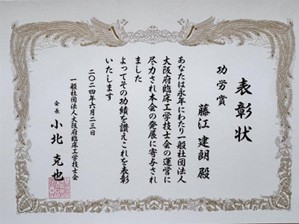 表彰状
功労賞
藤江 建朗 殿
あなたは永年にわたり一般社団法人
大阪府臨床工学技士会の運営に
尽力され本会の発展に寄与され
ました
よってその功績を讃えこれを表彰
いたします
二〇二四年六月二三日
一般社団法人大阪府臨床工学技士会
会長 小北 克也